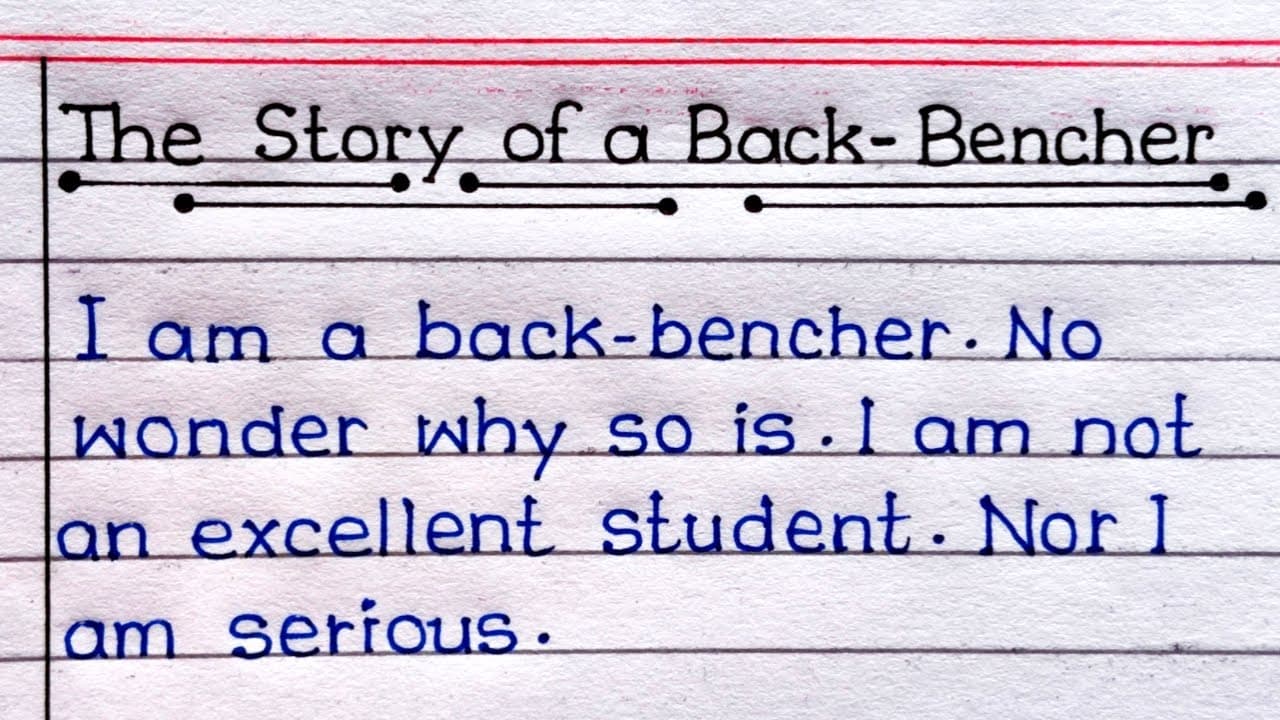 The Story of a Back-Bencher
I am a back-bencher. No
wonder why so is. I am not
an excellent student. Nor I
am serious.